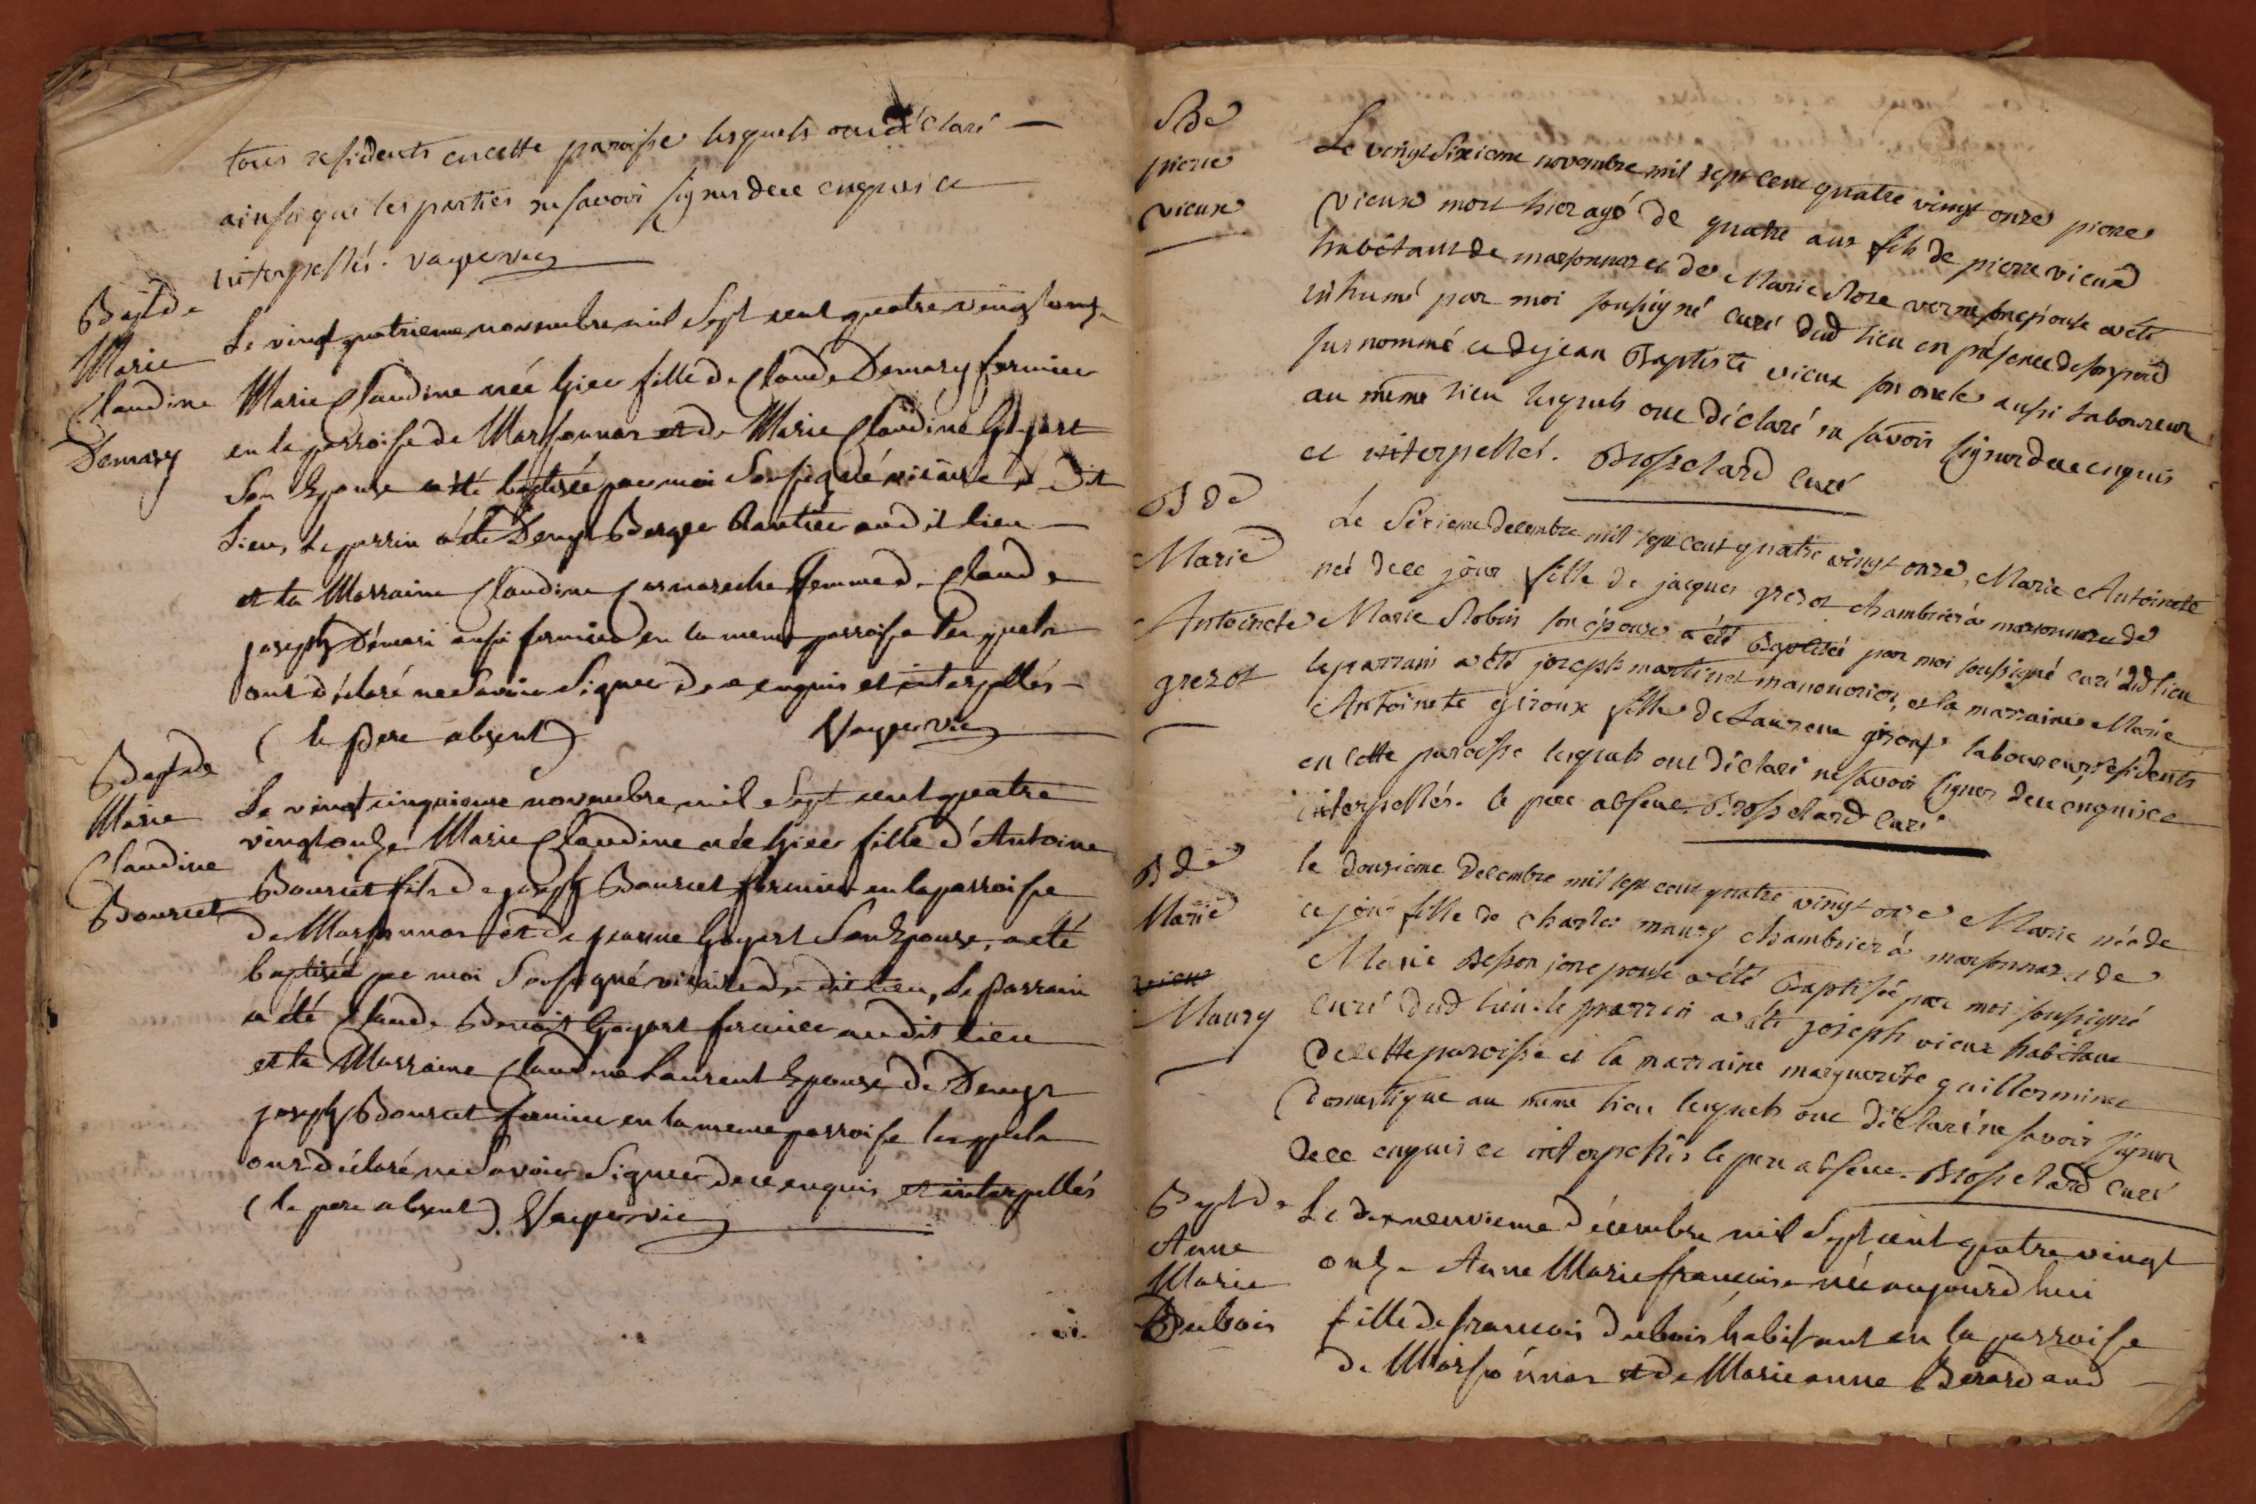 tous residents en cette paroisse lesquels ont déclaré —
ainsi que les parties ne savoir signer de ce enquis et
interpellés. vayer vic
Bapt de
Marie
Claudine
Demary
Le vingt quatrieme novembre mil Sept cent quatre vingt onze
Marie Claudine née hier fille de Claude Demary fermier
en la parroisse de Marsonnas et de Marie Claudine
Son Epouse a été baptisée par moi Soussigné vicaire du dit
Lieu, Le parrin a été Denys Berger audit lieu —
et la Marraine Claudine femme de Claude
joseph Démari aussi fermier en la meme parroisse Lesquels
ont déclaré ne Savoir Signer de ce enquis et interpellés —
( le pere absent ) Vayer vic
Bapt de
Marie
Claudine
Bourcet
Le vingt cinquieme novembre mil Sept cent quatre
vingt onze Marie Claudine née hier fille d'Antoine
Bourcet fils de joseph Bourcet fermier en la parroisse
de Marsonnas et de jeanne Goyart Son Epouse, a été
baptisée par moi Soussigné vicaire du dit lieu, Le parrain
a été Claude Benoit Goyart fermier audit lieu
et la Marraine Claudine Laurent Epouse de Denys
joseph Bourcet fermier en la meme parroisse lesquels
ont déclaré ne Savoir Signer de ce enquis et interpellés
( le pere absent ). Vayer vic
S de
pierre
vieux
Le vingt Sixieme novembre mil sept cent quatre vingt onze pierre
vieux mort hier agé de quatre ans fils de pierre vieux
habitant de marsonnas et de Marie Rose son épouse a été
inhumé par moi soussigné curé dud lieu en présence de son pere
susnommé et de jean Baptiste vieux son oncle aussi laboureur
au même lieu lesquels ont déclaré ne savoir signer de ce enquis
et interpellés. Brosselard Curé
B de
Marie
Antoinete
grezot
Le Sixieme decembre mil sept cent quatre vingt onze, Marie Antoinete
neé de ce jour fille de jacques grezot chambrier à marsonnas et de
Marie Robin son épouse a été Baptisée par moi soussigné curé dud lieu
le parrain a été joseph martinet manouvrier, et la marraine Marie
Antoinete giroux fille de Laurent giroux laboureur, residents
en cette paroisse lesquels ont déclaré ne savoir signer de ce enquis et
interpellés. le pere absent Brosselard Curé
B de
Marie
vieux
Maury
le douzieme decembre mil sept cent quatre vingt onze Marie née de
ce jour fille de charles maury chambrier à marsonnas et de
Marie Besson son epouse a été Baptisée par moi soussigné
curé dud lieu. le parrain a été joseph vieux habitant
de cette paroisse et la marraine marguerite guillermin
Domestique au même lieu lesquels ont déclaré ne savoir signer
de ce enquis et interpellés le pere absent. Brosselard Curé
Bapt de
Anne
Marie
Dubois
Le dix neuvieme décembre mil Sept cent quatre vingt
onze Anne Marie françoise née aujourd'hui
fille de francois dubois habitant en la parroisse
de Marsonnas et de Marie anne Berardand —